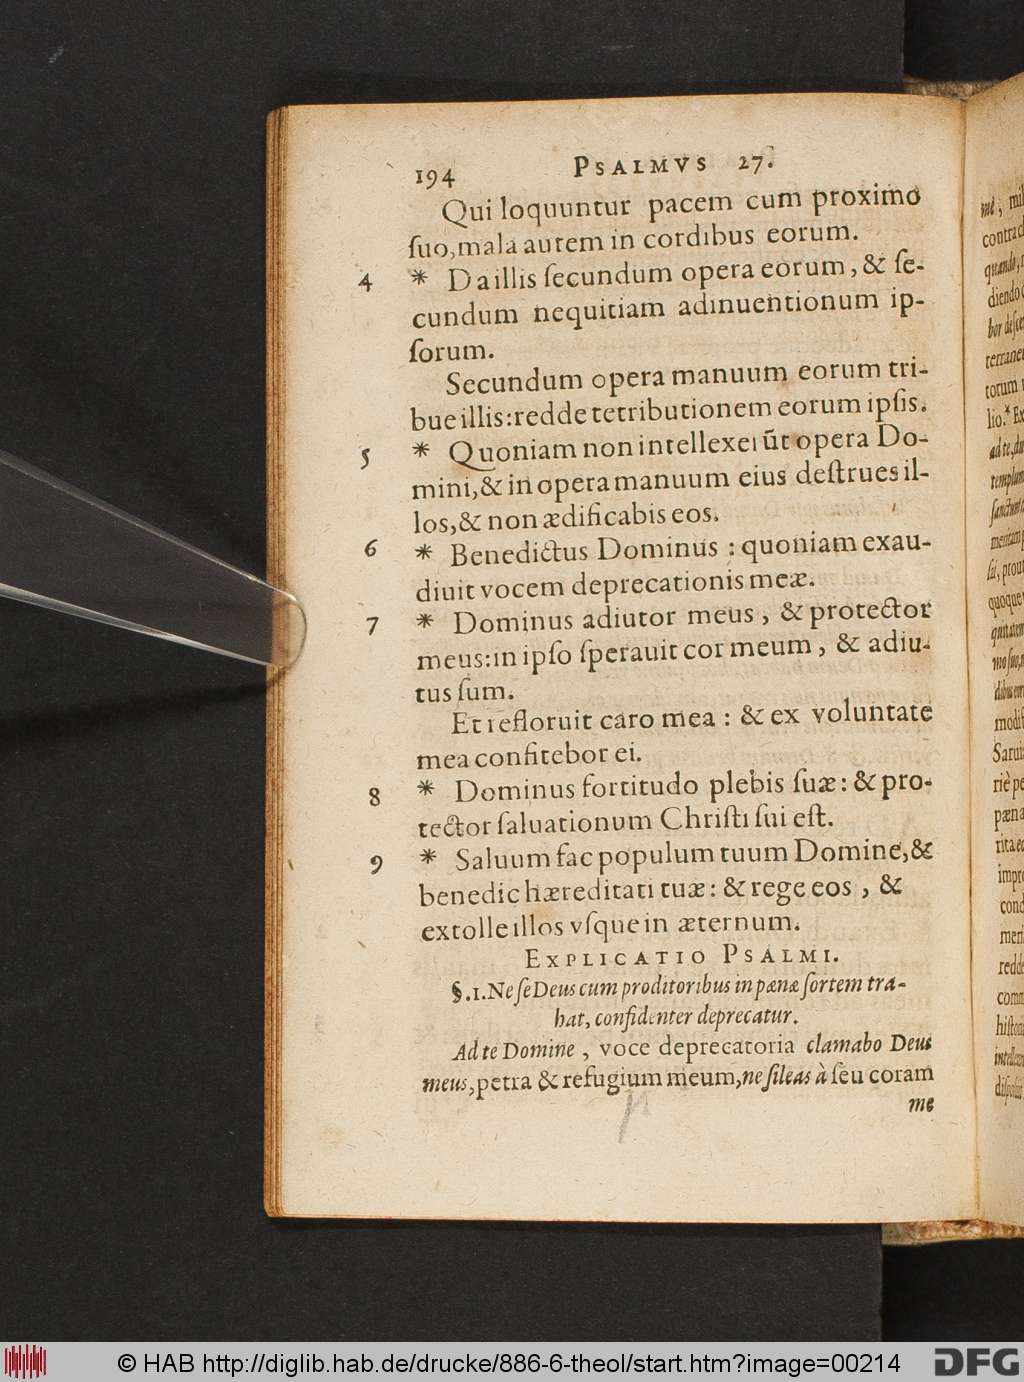 194 PSALMVS 27.
Qui loquuntur pacem cum proximo
ſuo,mala autem in cordibus eorum.
4 * Da illis ſecundum opera eorum, & ſe-
cundum nequitiam adinuentionum ip-
ſorum.
Secundum opera manuum eorum tri-
bue illis:redde tetributionem eorum ipſis.
5 * Quoniam non intellexerūt opera Do-
mini,& in opera manuum eius deſtrues il-
los,& non ædificabis eos.
6 * Benedictus Dominus : quoniam exau-
diuit vocem deprecationis meæ.
7 * Dominus adiutor meus , & protector
meus:in ipſo ſperauit cor meum , & adiu-
tus ſum.
Et refloruit caro mea : & ex voluntate
mea confitebor ei.
8 * Dominus fortitudo plebis ſuæ: & pro-
tector ſaluationum Chriſti ſui eſt.
9 * Saluum fac populum tuum Domine,&
benedic hæreditati tuæ: & rege eos , &
extolle illos vſque in æternum.
EXPLICATIO PSALMI.
§.1.Ne ſe Deus cum proditoribus in pœnæ ſortem tra-
hat, confidenter deprecatur.
Ad te Domine , voce deprecatoria clamabo Deus
meus,petra & refugium meum,ne ſileas à ſeu coram
me
© HAB http://diglib.hab.de/drucke/886-6-theol/start.htm?image=00214
DFG